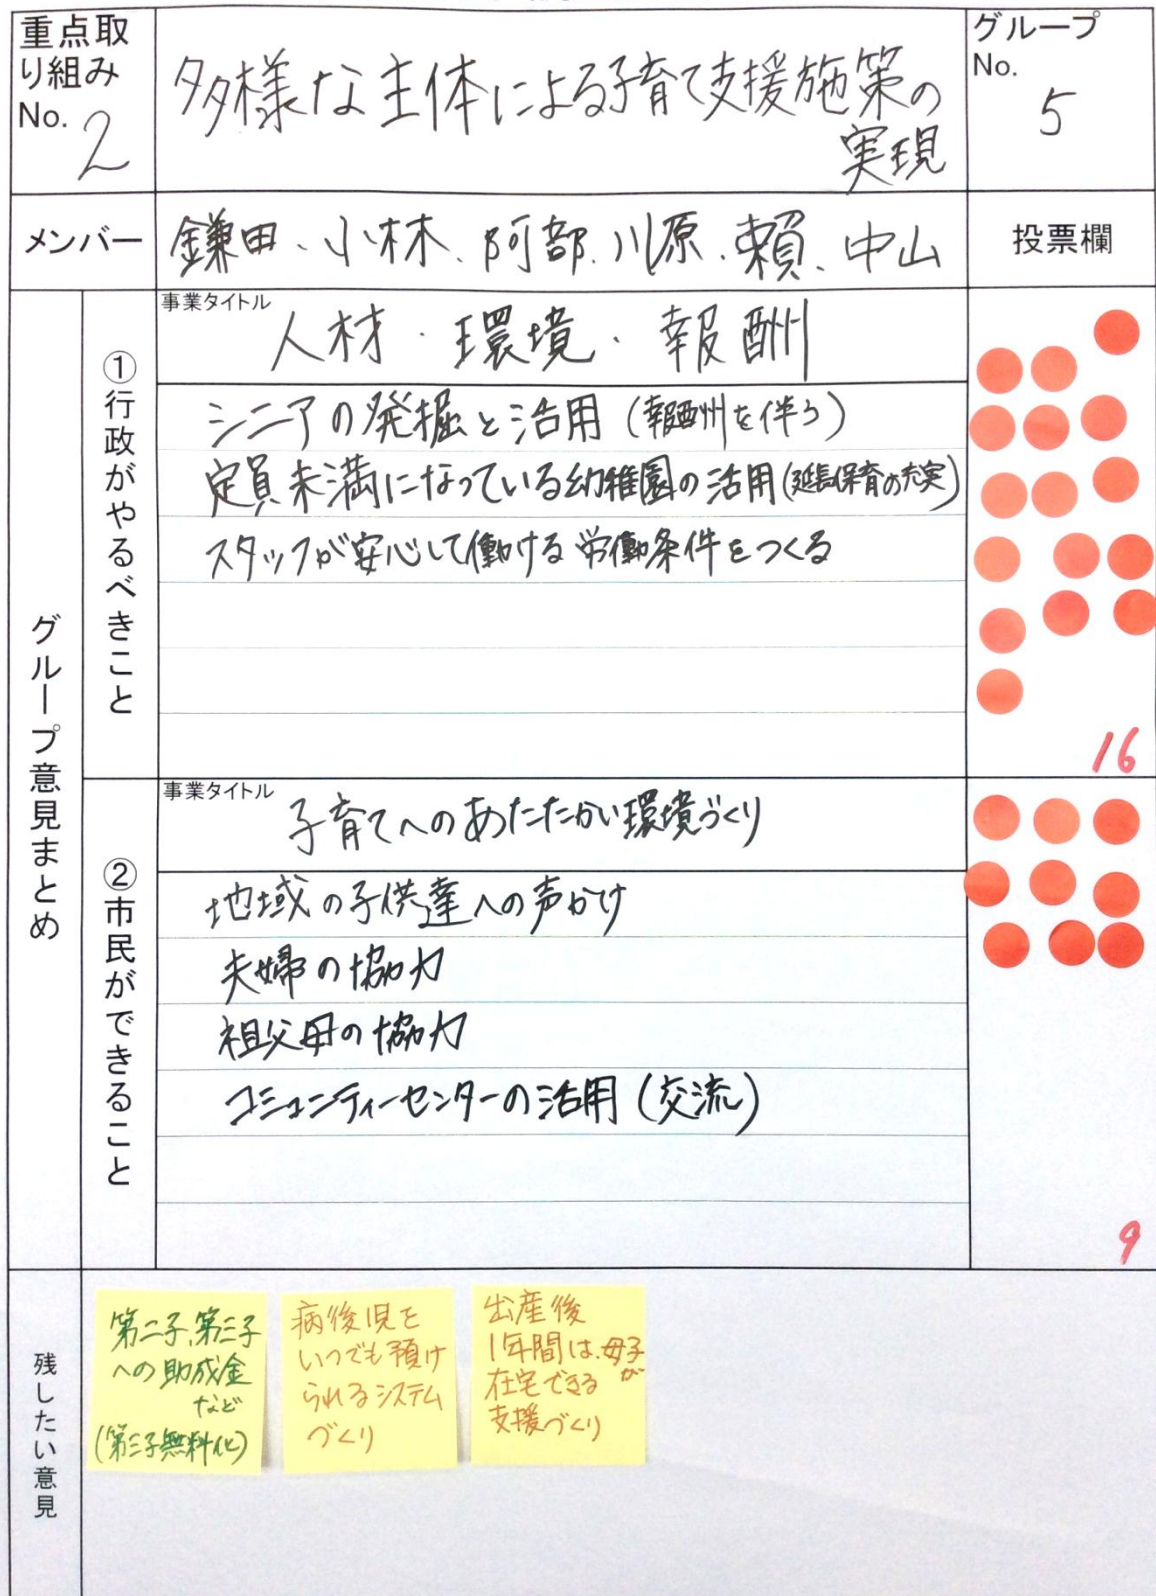 重点取
り組み
No. 2
多様な主体による子育て支援施策の
実現
グループ
No.
5
メンバー
鎌田、小林、阿部、川原、頼、中山
投票欄
グループ意見まとめ
①行政がやるべきこと
事業タイトル
人材・環境・報酬
シニアの発掘と活用(報酬を伴う)
定員未満になっている幼稚園の活用(延長保育の充実)
スタッフが安心して働ける労働条件をつくる
16
②市民ができること
事業タイトル
子育てへのあたたかい環境づくり
地域の子供達への声かけ
夫婦の協力
祖父母の協力
コミュニティーセンターの活用(交流)
9
残したい意見
第二子、第三子
への助成金
など
(第三子無料化)
病後児を
いつでも預け
られるシステム
づくり
出産後
1年間は、母子が
在宅できる
支援づくり